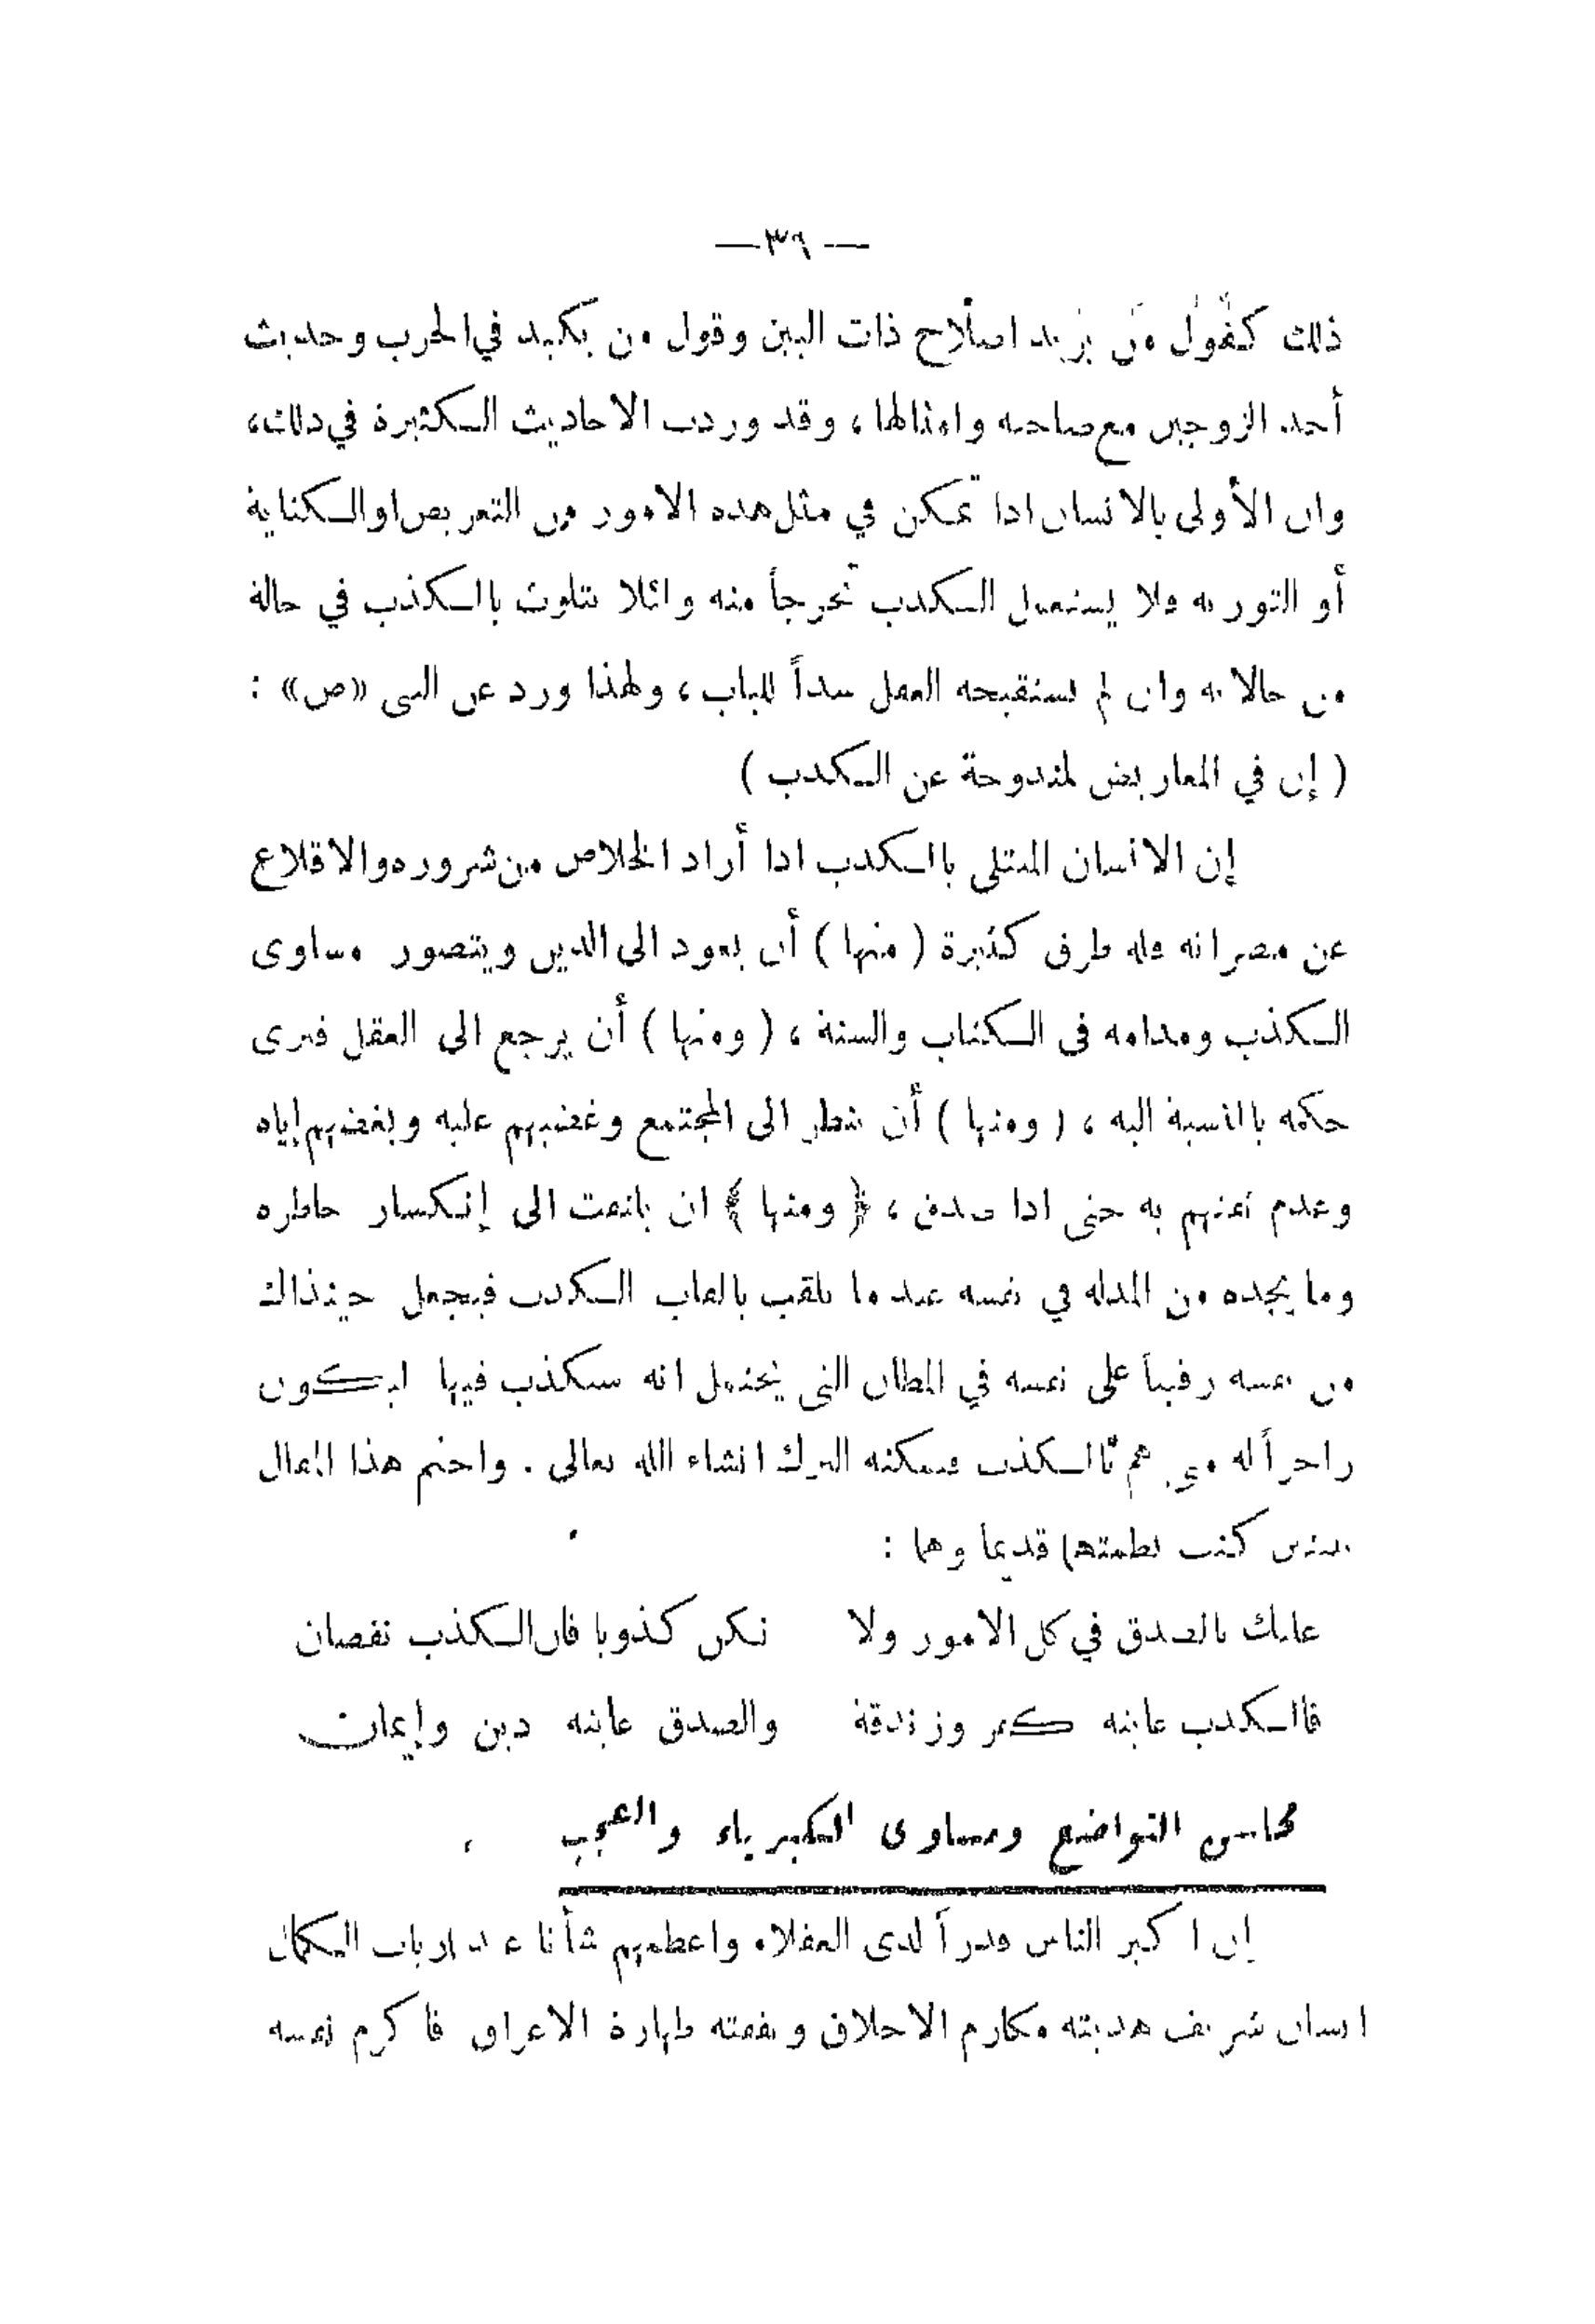 — ٣٦ —
ذلك كقول من يريد اصلاح ذات البين وقول من يكيد في الحرب وحديث
أحد الزوجين مع صاحبه وامثالها ، وقد وردت الاحاديث الكثيرة في ذلك ،
وان الأولى بالانسان اذا تمكن في مثل هذه الامور من التعريض او الكناية
أو التورية فلا يستعمل الكذب تحرجاً منه ولئلا يتلوث بالكذب في حالة
من حالاته وان لم يستقبحه العقل سداً للباب ، ولهذا ورد عن النبى «ص» :
( إن في المعاريض لمندوحة عن الكذب )
إن الانسان المبتلى بالكذب اذا أراد الخلاص من شروره والاقلاع
عن مضراته فله طرق كثيرة ( منها ) أن يعود الى الدين ويتصور مساوى
الكذب ومذامه فى الكتاب والسنة ، ( ومنها ) أن يرجع الى العقل فيرى
حكمه بالنسبة اليه ، ( ومنها ) أن ينظر الى المجتمع وغضبهم عليه وبغضهم إياه
وعدم ثقتهم به حتى اذا صدق ، ( ومنها ) ان يلتفت الى إنكسار خاطره
وما يجده من المذلة في نفسه عندما يلقب بالقاب الكذب فيجعل حينذاك
من نفسه رقيباً على نفسه في المظان التى يحتمل انه سيكذب فيها ليكون
زاجراً له من الكذب فيمكنه الترك انشاء الله تعالى . واختم هذا المقال
ببيتين كنت نظمتها قديما وهما :
عليك بالصدق في كل الامور ولا تكن كذوبا فان الكذب نقصان
فالكذب غايته كفر وزندقة والصدق غايته دين وإيمان
محاسن التواضع ومساوى الكبرياء والعجب
إن اكبر الناس قدراً لدى العقلاء واعظمهم شأنا عند ارباب الكمال
انسان شريف هديته مكارم الاخلاق وبغيته طهارة الاعراق فاكرم نفسه